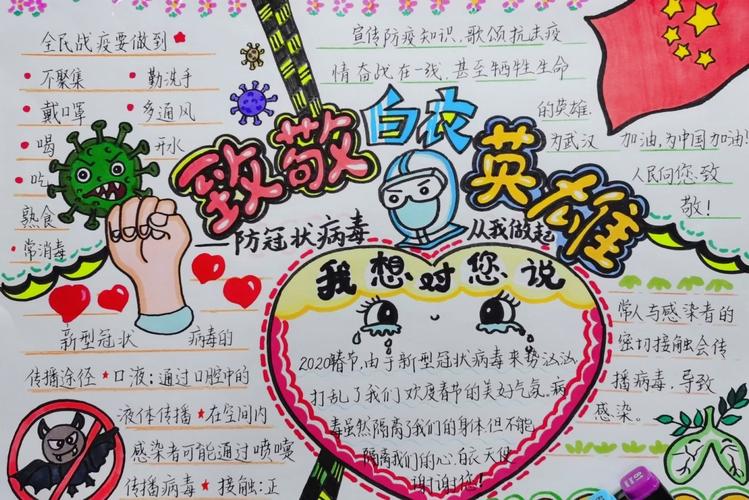 全民战疫要做到
不聚集 勤洗手
戴口罩 多通风
喝 开水
吃
熟食
常消毒
宣传防疫知识,歌颂抗击疫
情奋战在一线,甚至牺牲生命
的英雄.
为武汉 加油,为中国加油!
人民向您致
敬!
致敬白衣英雄
—防冠状病毒 从我做起
我想对您说
2020春节,由于新型冠状病毒来势汹汹,
打乱了我们欢度春节的美好气氛.病
毒虽然隔离了我们的身体,但不能
隔离我们的心,白衣天使
谢谢您!
新型冠状 病毒的
传播途径★口液:通过口腔中的
液体传播★在空间内
感染者可能通过喷嚏
传播病毒★接触:正
常人与感染者的
密切接触会传
播病毒,导致
感染。